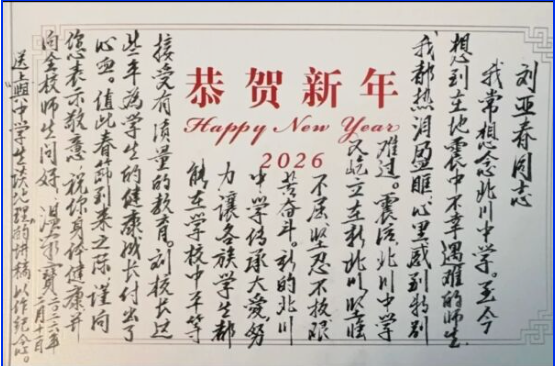 刘亚春同志
我常想念北川中学。至今
想到在地震中不幸遇难的师生
我都热泪盈眶心里感到特别
难过。震后,北川中学
又屹立在新北川,坚强
不屈坚忍不拔艰
苦奋斗。新的北川
中学传承大爱努
力让各族学生都
能在学校中平等
接受有质量的教育。刘校长这
些年为学生的健康成长付出了
心血。值此春节到来之际谨向
您表示敬意 祝你身体健康并
向全校师生问好 温家宝
二〇二六年
二月十一日
送上与中学生谈地理的讲稿以作纪念。
恭贺新年
Happy New Year
2026